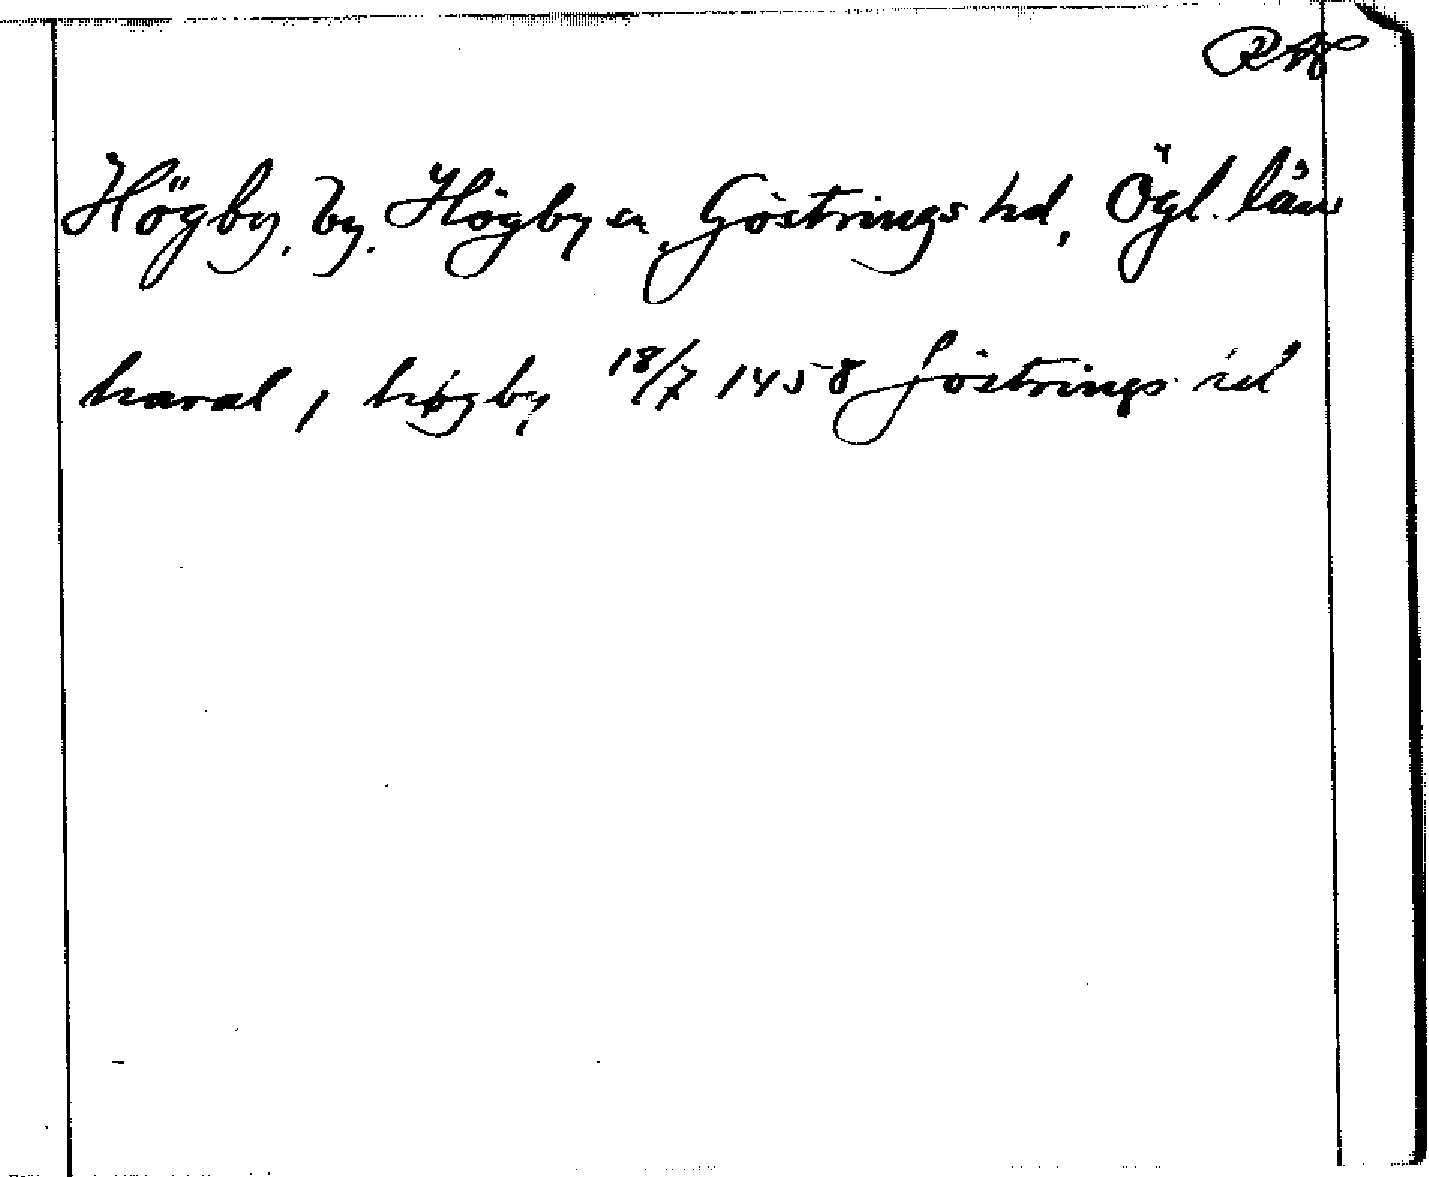 RAp
Högby, by. Högby sn, Göstrings hd, Ögl. län
haral i høgby 18/7 1458 Göstrings hd